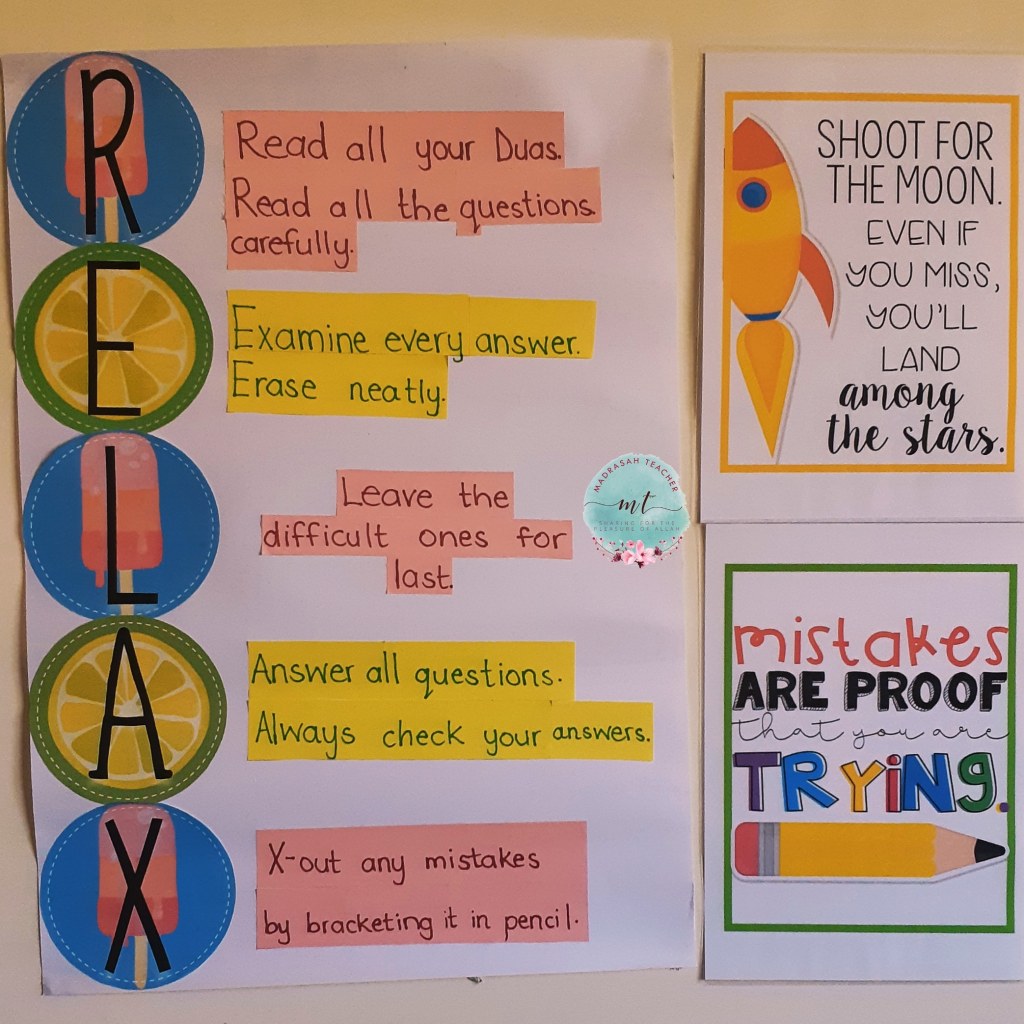 R
Read all your Duas.
Read all the questions
carefully.
E
Examine every answer.
Erase neatly.
L
Leave the
difficult ones for
last.
A
Answer all questions.
Always check your answers.
X
X-out any mistakes
by bracketing it in pencil.
MADRASAH TEACHER
mt
SHARING FOR THE
PLEASURE OF ALLAH
SHOOT FOR
THE MOON.
EVEN IF
YOU MISS,
YOU'LL
LAND
among
the stars.
mistakes
ARE PROOF
that you are
TRYiNG.